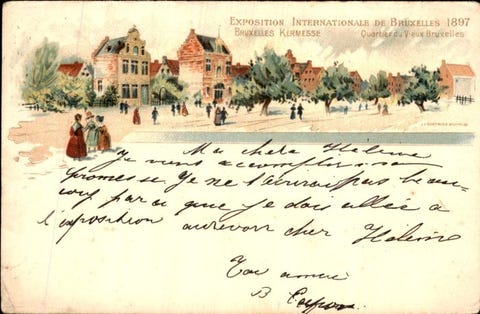 EXPOSITION INTERNATIONALE DE BRUXELLES 1897
BRUXELLES KERMESSE Quartier du Vieux Bruxelles
Ma chere Helene
Je viens accomplir sa
promesse Je ne t'ecrirai pas beau-
coup parce que je dois allée à
l'exposition aurevoir cher Helene
Ton amie
B